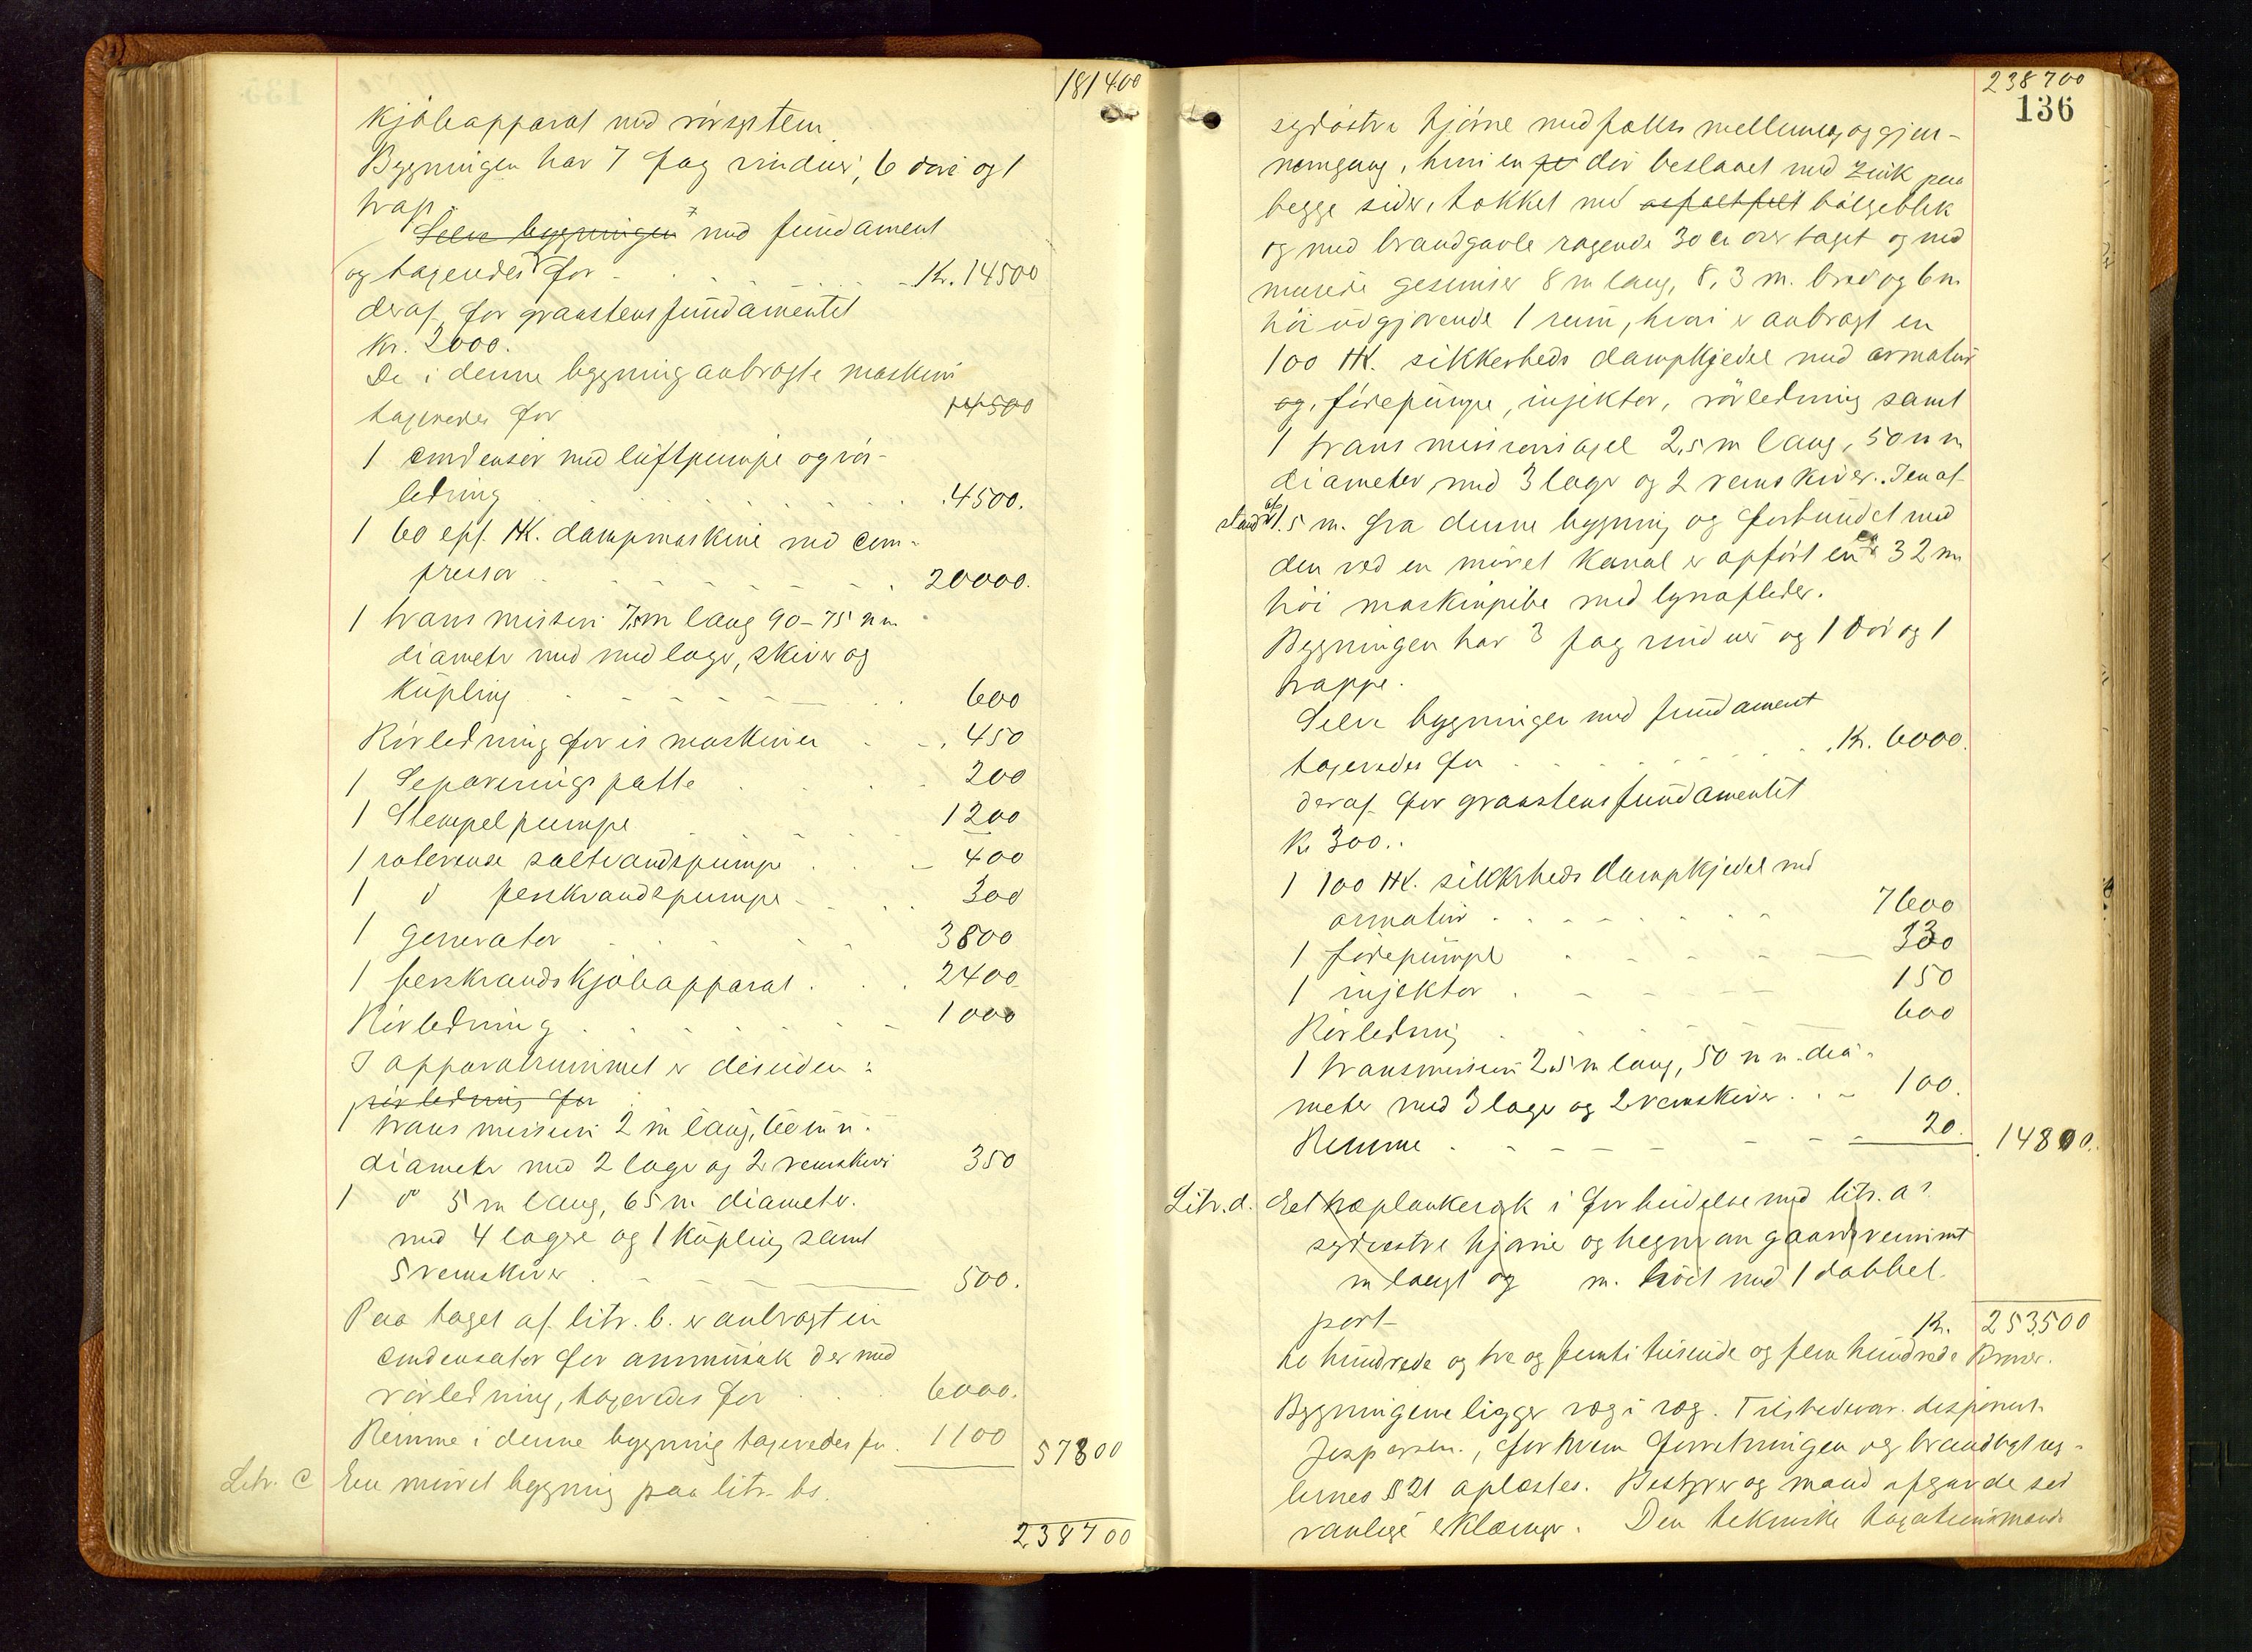 181400
Kjøleapparat med rørsystem
Bygningen har 7 fag vinduer, 6 døre og 1
trap
Selve bygningen med fundament
og taxeredes for - Kr. 14500
deraf for graastensfundamentet
Kr. 2000.
De i denne bygning anbragte maskiner
taxeredes for 14500
1 condensor med luftpumpe og rør-
ledning 4500.
1 60 eff. HK. dampmaskine med com-
pressor 20000.
1 transmission 7,5 m lang 90-75 mm
diameter med med lager, skiver og
kupling 600
Rørledning for is maskinen 450
1 Separerings patte 200
1 Stempelpumpe 1200
1 roterende saltvandspumpe 400
1 do ferskvandspumpe 300
1 generator 3800
1 ferskvandskjøleapparat 2400
Rørledning 1000
I apparatrummet er desuden:
rørledning for
1 transmission 2 m lang, 60 mm.
diameter med 2 lager og 2 remskiver 350
1 do 5 m lang, 65 m. diameter.
med 4 lagere og 1 kupling samt
5 remskiver 500.
Paa taget af litr. b. er anbragt en
condensator for ammoniak der med
rørledning, taxeredes for 6000.
Remme i denne bygning taxeredes for 1100 57300
Litr. C En muret bygning paa litr. bs.
238700
238700
136
sydøstre hjørne med fælles mellemvæg og gjen-
nemgang, hvori en dør beslaaet med zink paa
begge sider, tækket med asfaltfilt bølgeblik
og med brandgavle ragende 30 cm over taget og med
murede gesimser 8 m lang, 8,3 m. bred og 6 m.
høi udgjørende 1 rum, hvori er anbragt en
100 HK. sikkerheds dampkjedel med armatur
og, fødepumpe, injektor, rørledning samt
1 transmissionsaxel 2,5 m lang, 50 mm
diameter med 3 lager og 2 remskiver. I en af-
stand af 1.5 m. fra denne bygning og forbundet med
den ved en muret kanal er opført en ca 32 m
høi maskinpibe med lynafleder.
Bygningen har 3 fag vinduer og 1 dør og 1
trappe.
Selve bygningen med fundament
taxeredes for Kr. 6000.
deraf for graastensfundamentet
Kr 300..
1 100 HK. sikkerheds dampkjedel med
armatur 7600
1 fødepumpe 330
1 injektor 150
Rørledning 600
1 transmission 2,5 m lang, 50 mm. dia-
meter med 3 lager og 2 remskiver 100.
Remme 20. 14800.
Litr. d. Et træplankeværk i forbindelse med litr. a's
sydvestre hjørne og hegner an gaardsrummet
m langt og m. høit med 1 dobbel
port
Kr. 253500
to hundrede og tre og femti tusinde og fem hundrede Kroner.
Bygningerne ligger væg i væg. Tilstede var disponent
Jespersen, for hvem forretningen og brandvigtig-
lernes § 21 oplæstes. Bestyrer og mand afgav de sed
vanlige erklæringer. Den tekniske taxationsmand